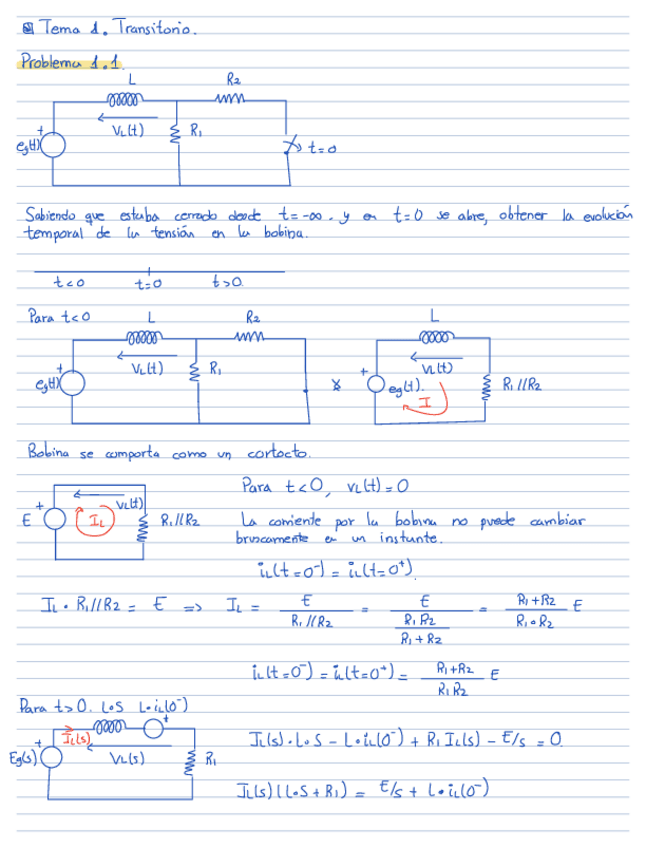 Tema 1. Transitorio.
Problema 1.1.
L R2
+ VL(t) R1
eg(t) t=0
Sabiendo que estaba cerrado desde t=-∞. y en t=0 se abre, obtener la evolución
temporal de la tensión en la bobina.
t<0 t=0 t>0.
Para t<0 L R2 L
+ VL(t) R1 + VL(t)
eg(t) eg(t). R1//R2
I
Bobina se comporta como un cortocto.
Para t<0, vL(t)=0
+ VL(t)
E IL R1//R2 La corriente por la bobina no puede cambiar
bruscamente en un instante.
iL(t=0-) = iL(t=0+).
IL · R1//R2 = E => IL = E / R1//R2 = E / (R1 R2 / R1+R2) = R1+R2 / R1·R2 E
iL(t=0-) = iL(t=0+) = R1+R2 / R1 R2 E
Para t>0. L·S L·iL(0-)
+ IL(s) +
Eg(s) VL(s) R1 IL(s)·L·S - L·iL(0-) + R1 IL(s) - E/s = 0.
IL(s)(L·S+R1) = E/s + L·iL(0-)